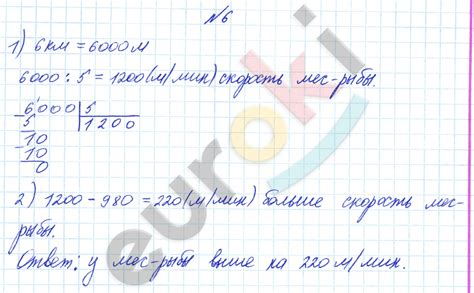 №6
1) 6км = 6000м
6000 : 5 = 1200 (м/мин) скорость меч-рыбы.
6000 5
5 1200
10
10
0
2) 1200 - 980 = 220 (м/мин) больше скорость меч-
рыбы.
Ответ: у меч-рыбы выше на 220 м/мин.
euroki